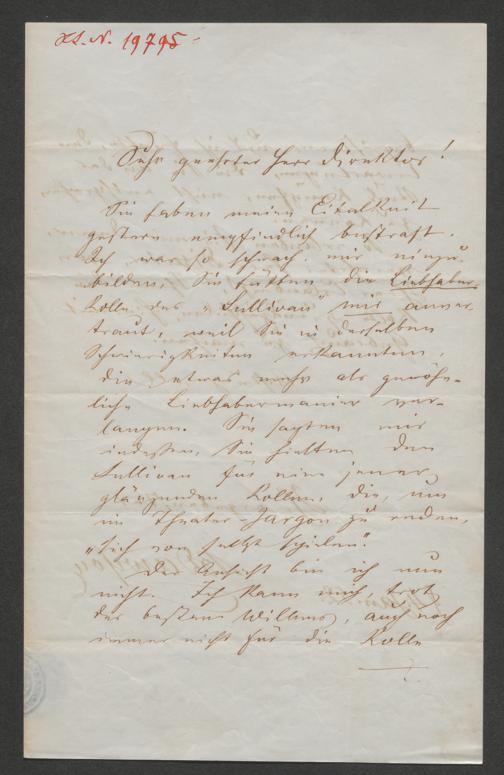 I.N. 19795
Sehr geehrter Herr Direktor!
Sie haben meine Eitelkeit
gestern empfindlich bestraft.
Ich war so schwach mir einzu-
bilden, Sie hätten die Liebhaber-
Rolle des „Sullivan" mir anver-
traut, weil Sie in derselben
Schwierigkeiten erkannten,
die etwas mehr als gewöhn-
liche Liebhabermanier ver-
langen. Sie sagten mir
indessen, Sie hielten den
Sullivan für eine jener
glänzenden Rollen, die, um
im Theater-Jargon zu reden,
„sich von selbst spielen".
Der Ansicht bin ich nun
nicht. Ich kann mich, trotz
des besten Willens, auch noch
immer nicht für die Rolle